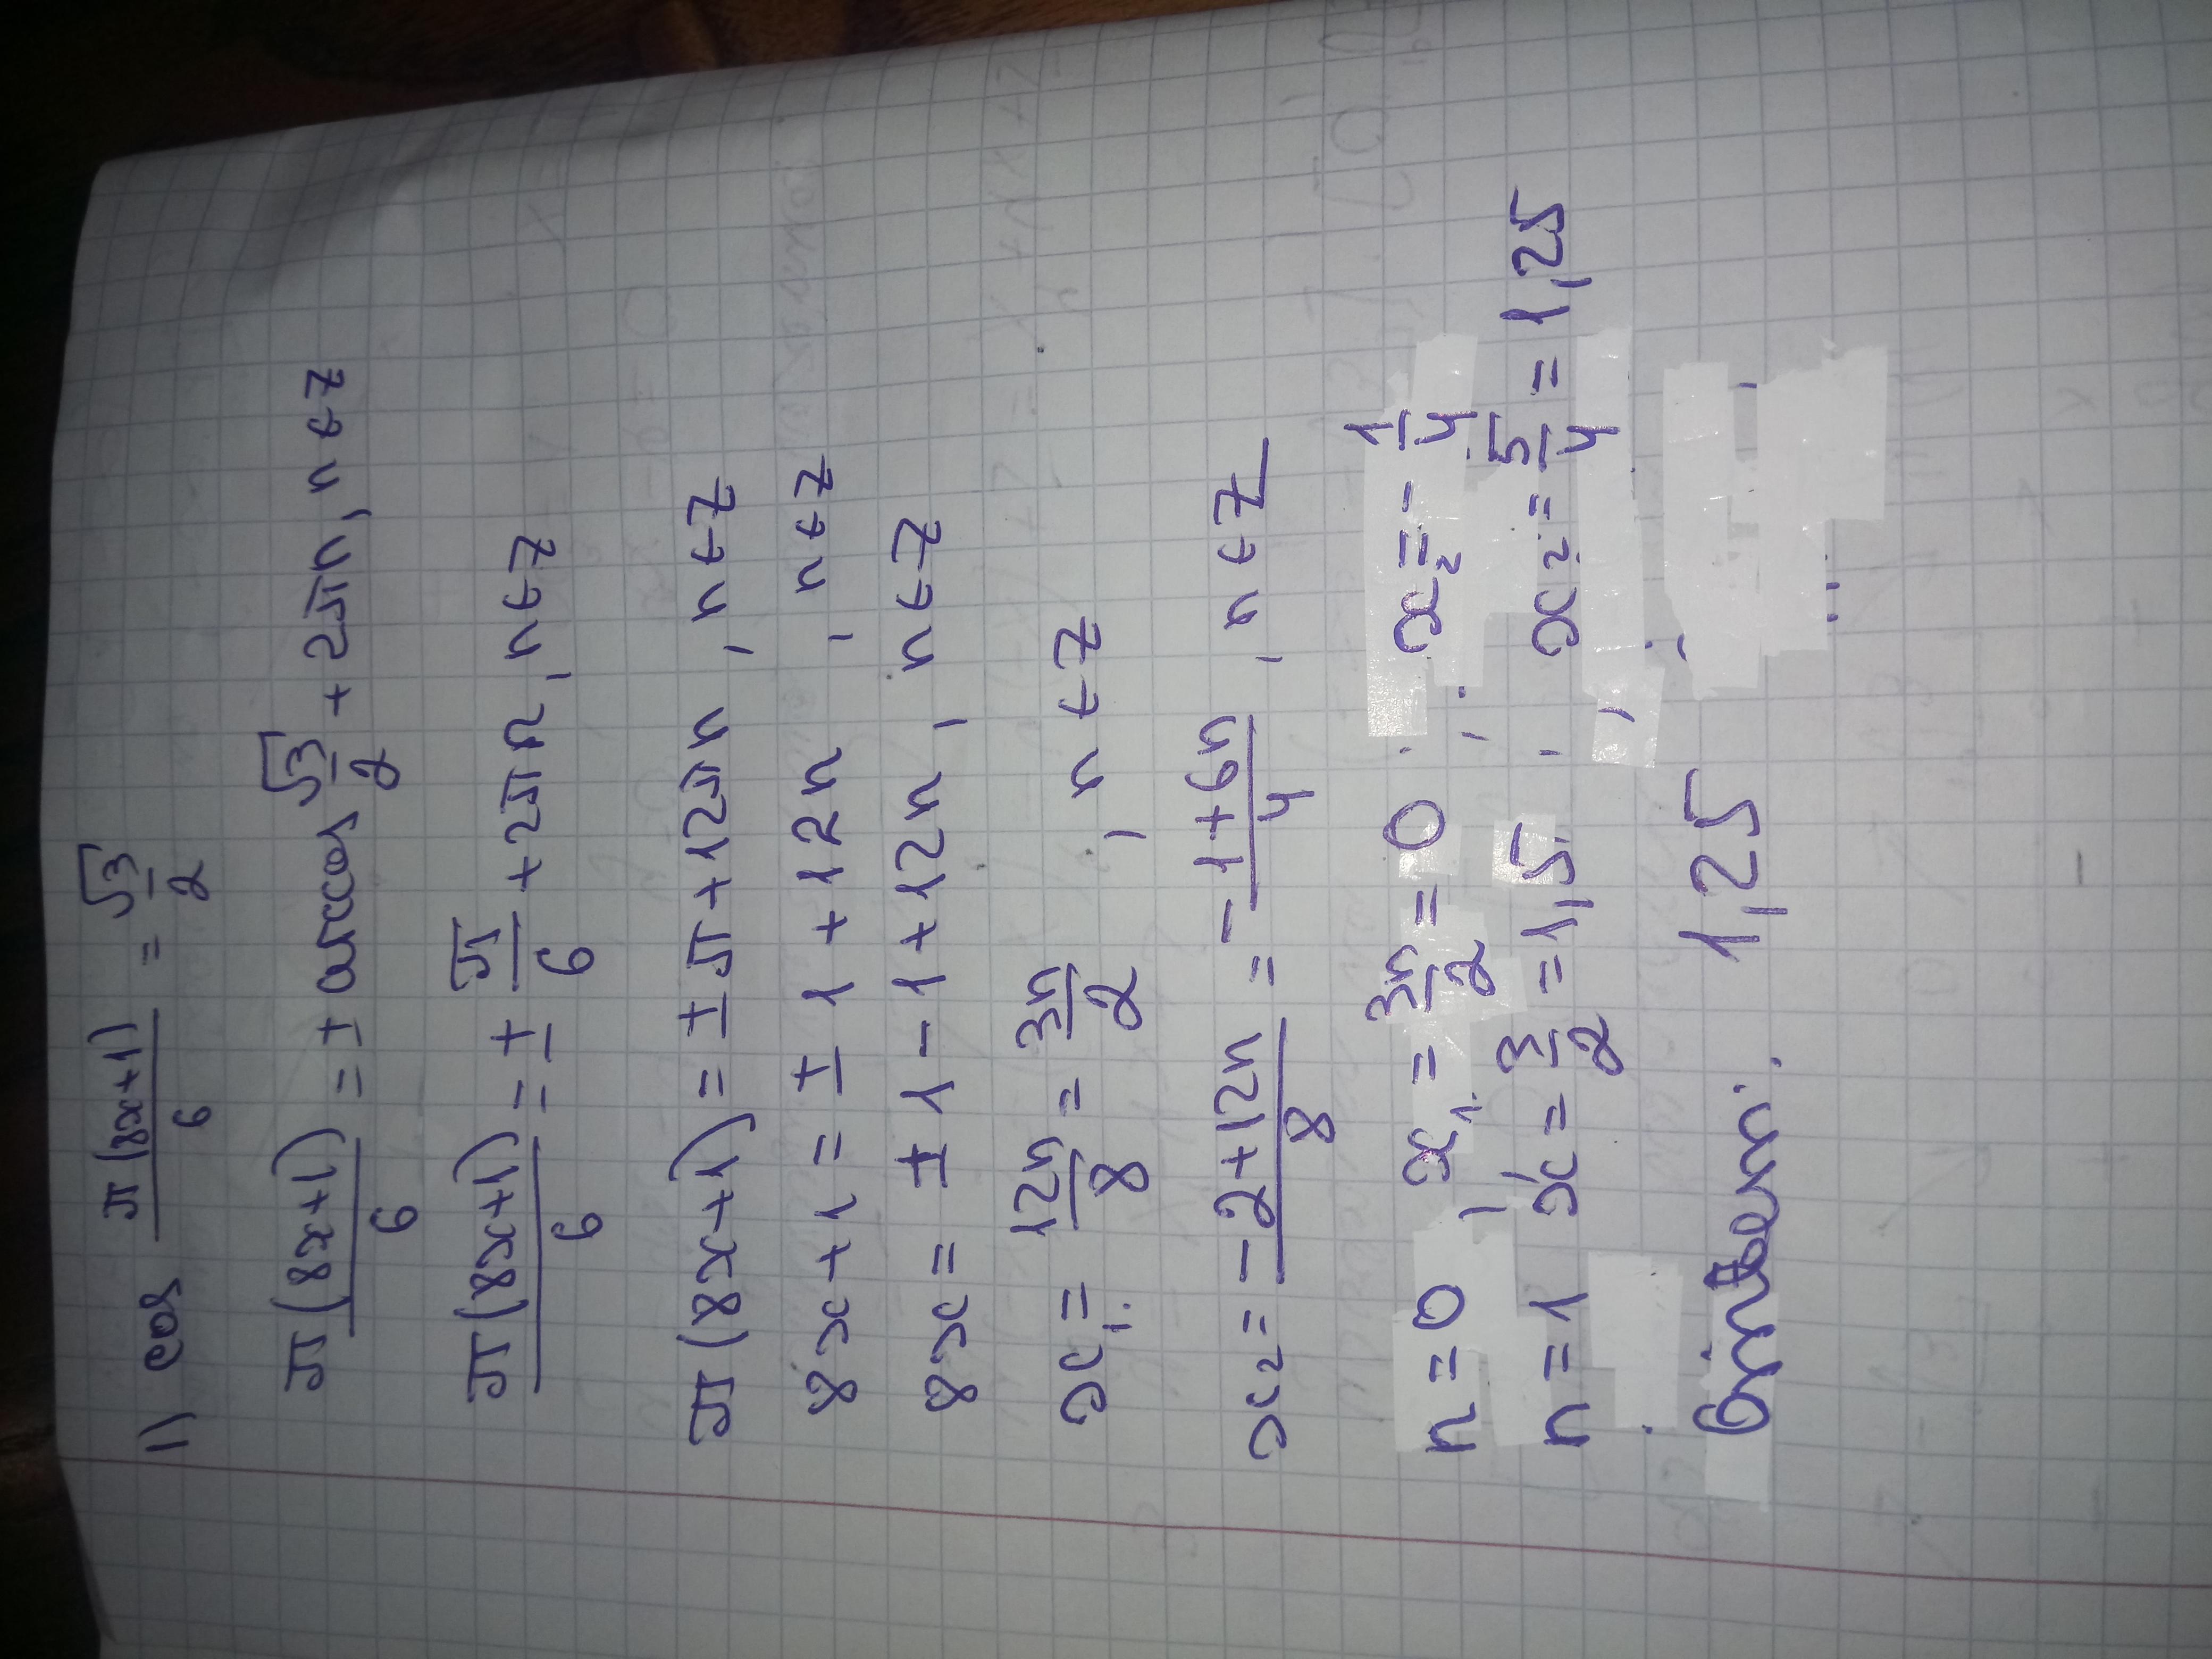 1) cos π(8x+1)/6 = √3/2
π(8x+1)/6 = ± arccos √3/2 + 2πn, n∈Z
π(8x+1)/6 = ± π/6 + 2πn, n∈Z
π(8x+1) = ± π + 12πn, n∈Z
8x+1 = ± 1 + 12n, n∈Z
8x = ± 1 - 1 + 12n, n∈Z
x₁ = 12n/8 = 3n/2, n∈Z
x₂ = -2+12n/8 = -1+6n/4, n∈Z
n=0, x₁ = 3n/2 = 0, x₂ = -1/4
n=1, x = 3/2 = 1,5, x₂ = 5/4 = 1,25
1,25